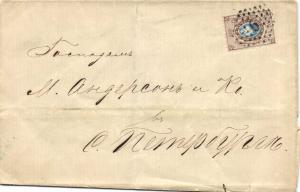 Господамъ
М. Андерсонъ и Ко.
въ
С. Петербургѣ.